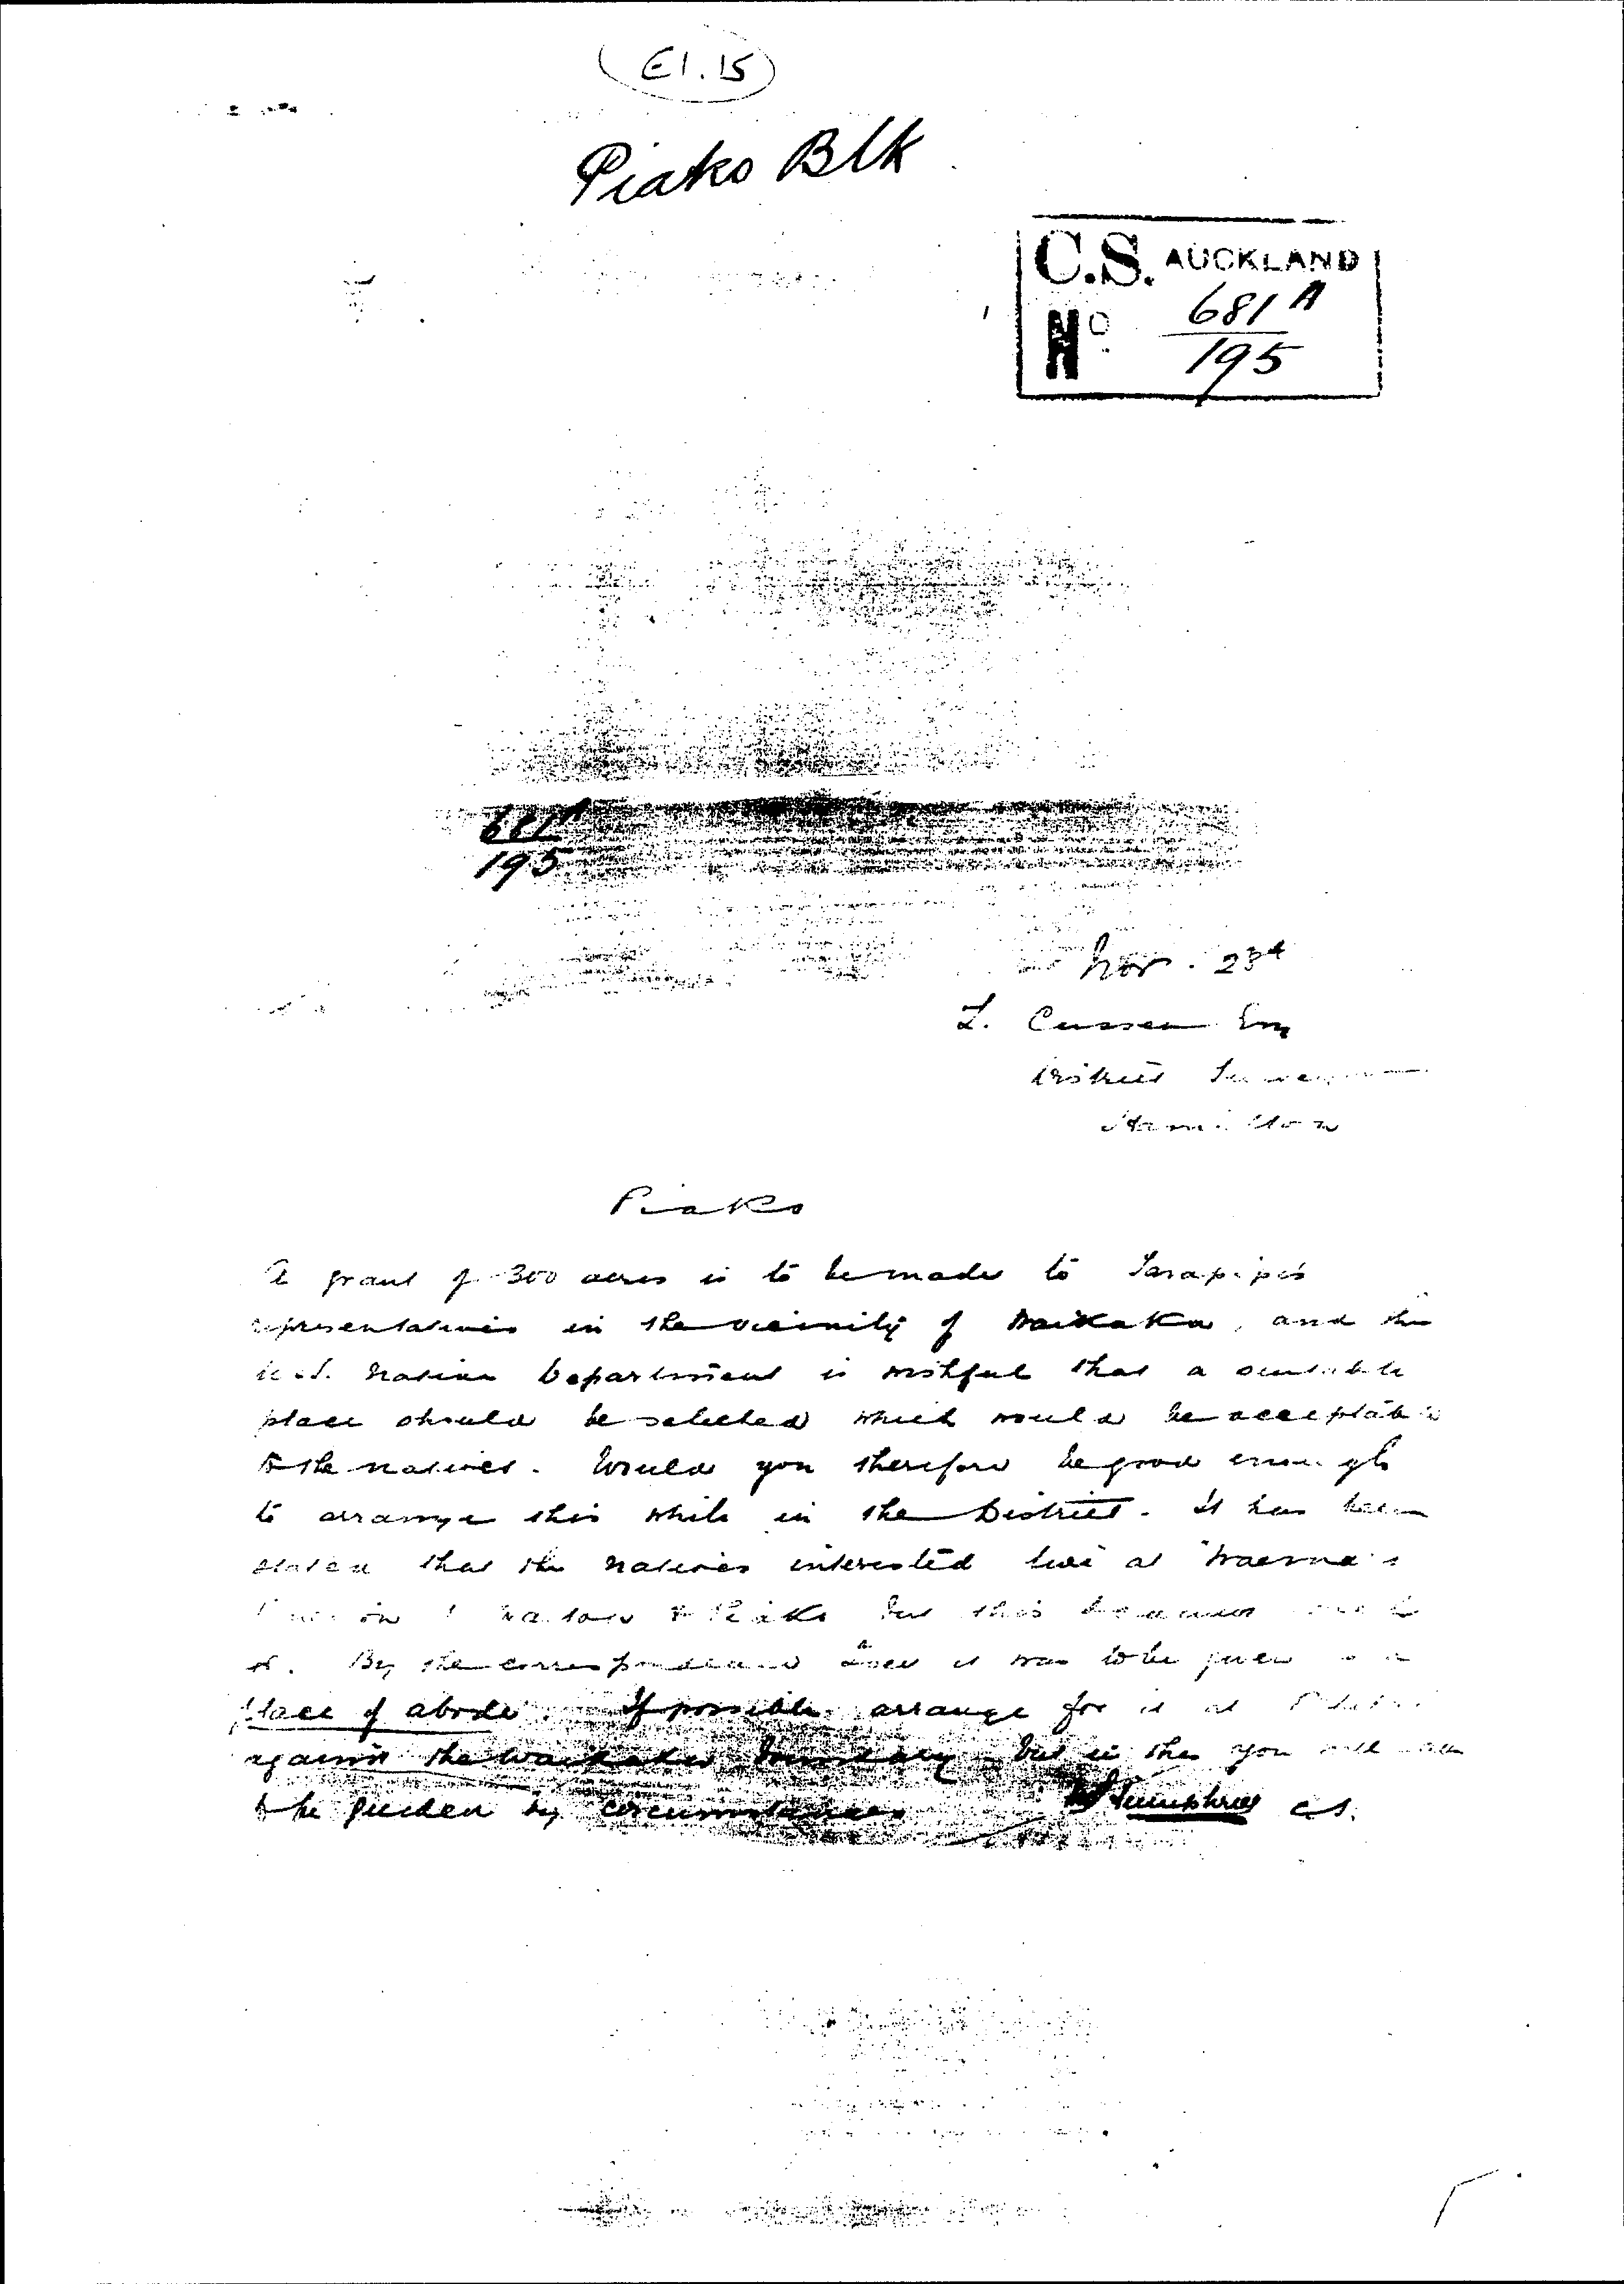 E1.15
Piako Blk
C.S. AUCKLAND
No 681A
195
681A
195
Nov. 23d
L. Cussen Esq
District Surveyor
Hamilton
Piako
A grant of 300 acres is to be made to Tarapipi's
representatives in the vicinity of and the
Native Department is wishful that a suitable
place should be selected which would be acceptable
to the natives. Would you therefore be good enough
to arrange this while in the District. It has been
stated that the natives interested live at
but this
By the correspondence it was to be given
place of abode. If possible arrange for it at
against the boundary but in this you will
be guided by circumstances Humphries C.S.